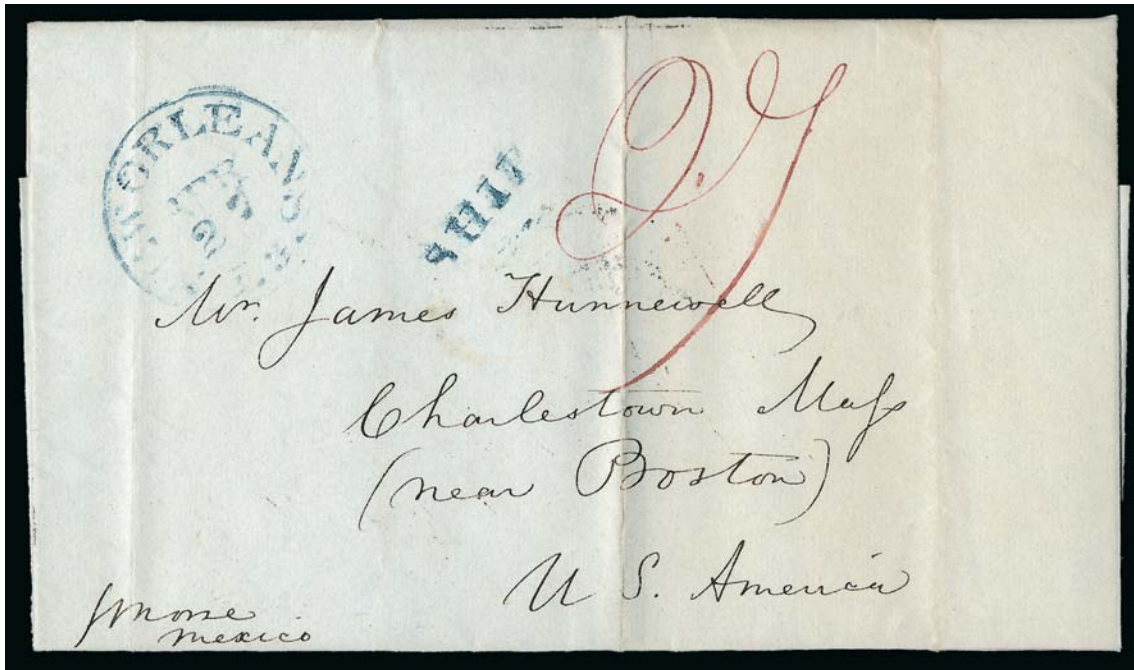 ORLEANS
SHIP
27
Mr. James Hunnewell
Charlestown Mass
(near Boston)
U S. America
Mexico